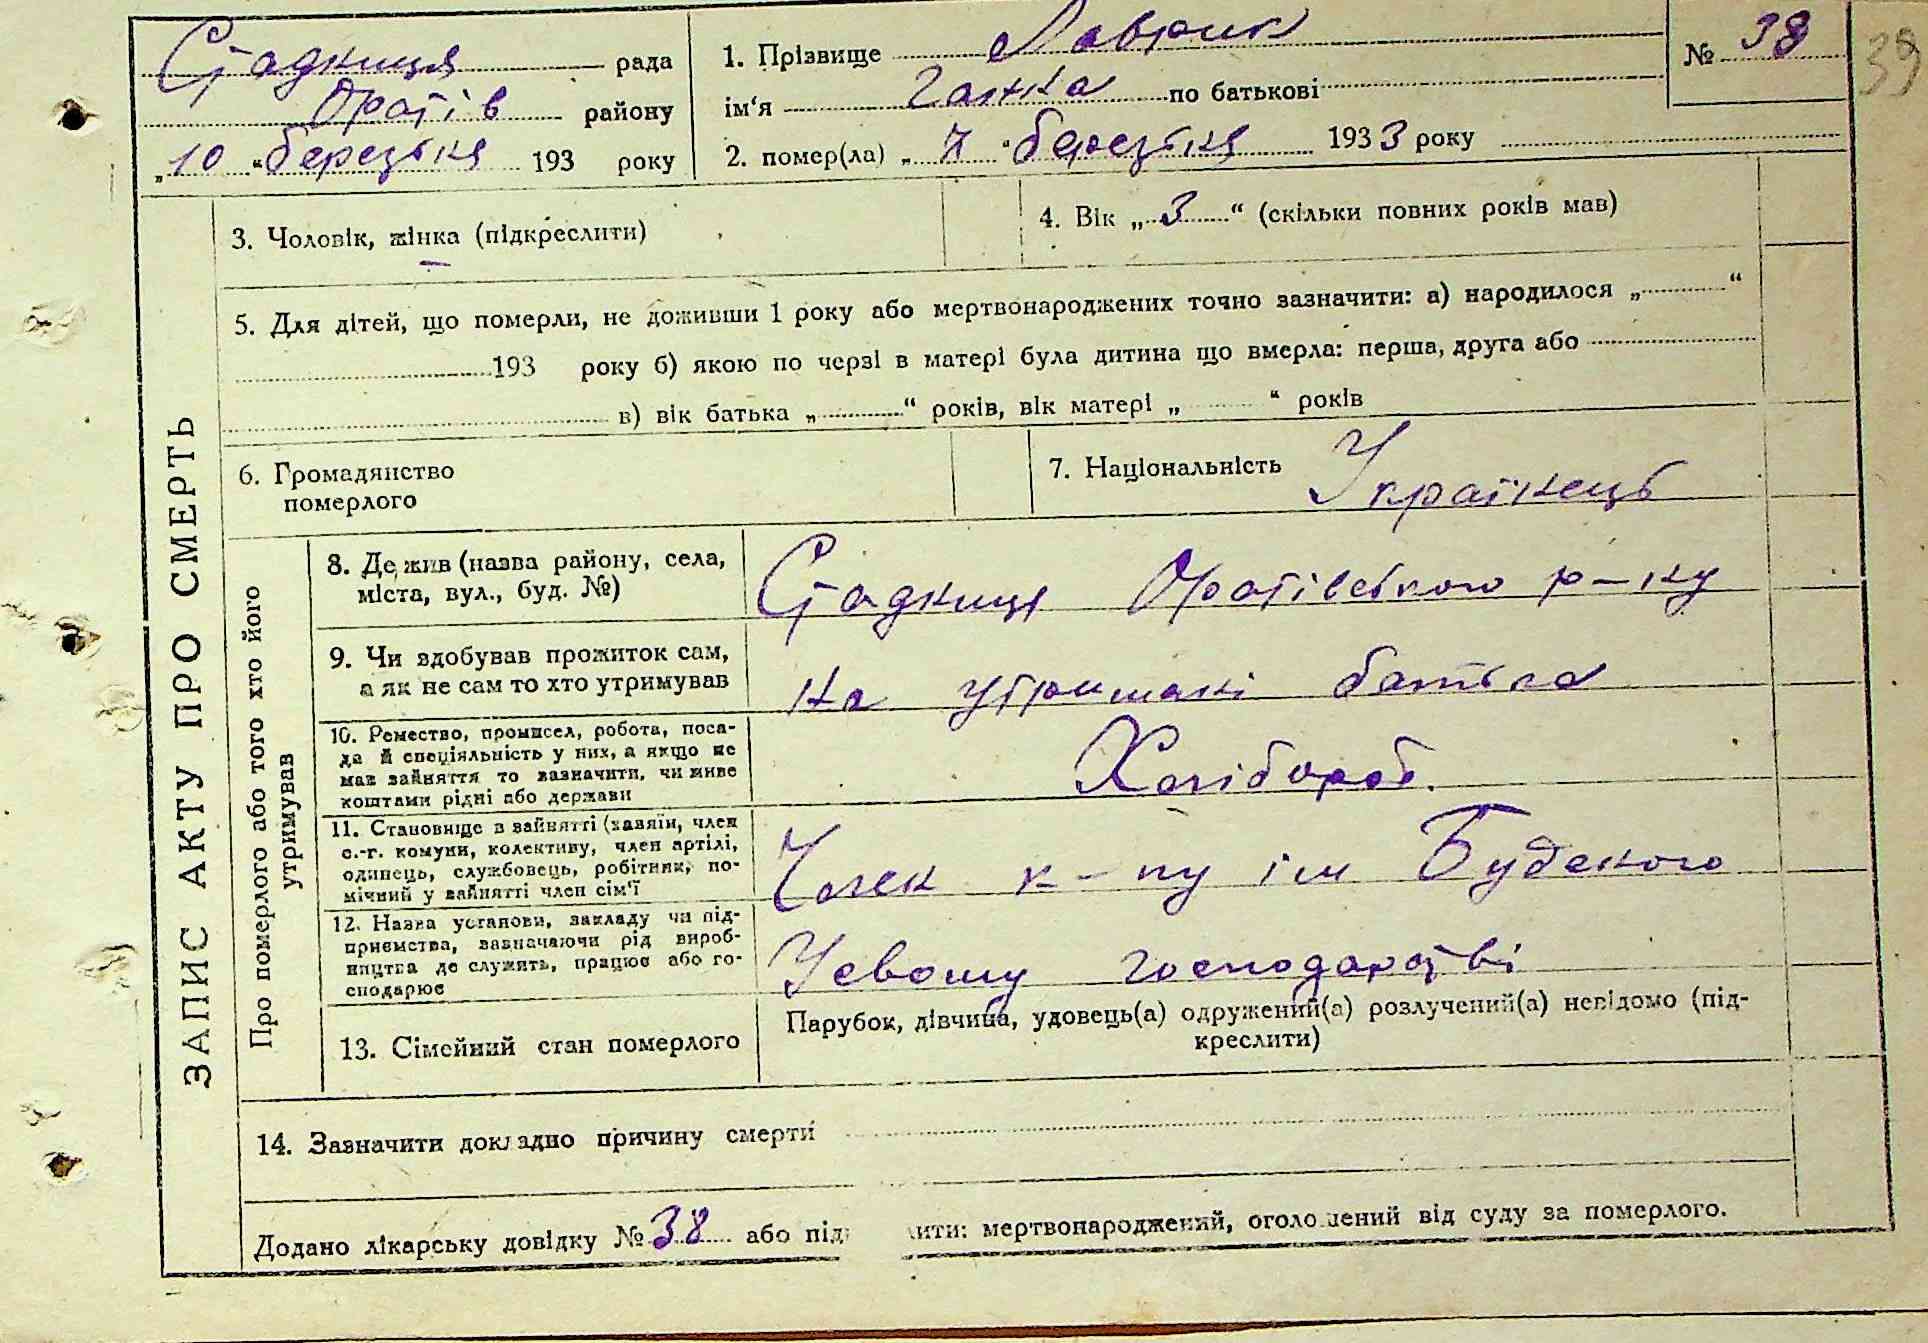 Стадниця рада
Оратів району
„10“ березьня 193 року
1. Прізвище Лаврик
ім‘я Ганка по батькові
2. помер(ла) „7“ березьня 1933 року
№ 38
39
3. Чоловік, жінка (підкреслити)
4. Вік „3“ (скільки повних років мав)
5. Для дітей, що померли, не доживши 1 року або мертвонароджених точно зазначити: а) народилося „ “
193 року б) якою по черзі в матері була дитина що вмерла: перша, друга або
в) вік батька „ “ років, вік матері „ “ років
6. Громадянство
померлого
7. Національність Українець
ЗАПИС АКТУ ПРО СМЕРТЬ
Про померлого або того хто його
утримував
8. Де жив (назва району, села,
міста, вул., буд. №)
Стадниця Оратівського р-ну
9. Чи здобував прожиток сам,
а як не сам то хто утримував
на утриманні батька
10. Ремество, промисел, робота, поса-
да й спеціяльність у них, а якщо не
мав зайняття то зазначити, чи живе
коштами рідні або держави
Хлібороб.
11. Становище в зайнятті (хавяїн, член
с.-г. комуни, колективу, член артілі,
одинець, службовець, робітник, по-
мічний у зайнятті член сім‘ї
Член к-пу ім Буденого
12. Назва установи, закладу чи під-
приємства, зазначаючи рід вироб-
ництва де служить, працює або го-
сподарює
Усвому господарстві
13. Сімейний стан померлого
Парубок, дівчина, удовець(а) одружений(а) розлучений(а) невідомо (під-
креслити)
14. Зазначити докладно причину смерти
Додано лікарську довідку № 38 або під лити: мертвонароджений, оголошений від суду за померлого.